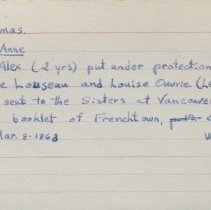 mas.
Anne
Alex (2 yrs) put under protection
e Louseau and Louise Ouvrie (Le
sent to the Sisters at Vancouve
booklet of Frenchtown,
Mar. 8-1863